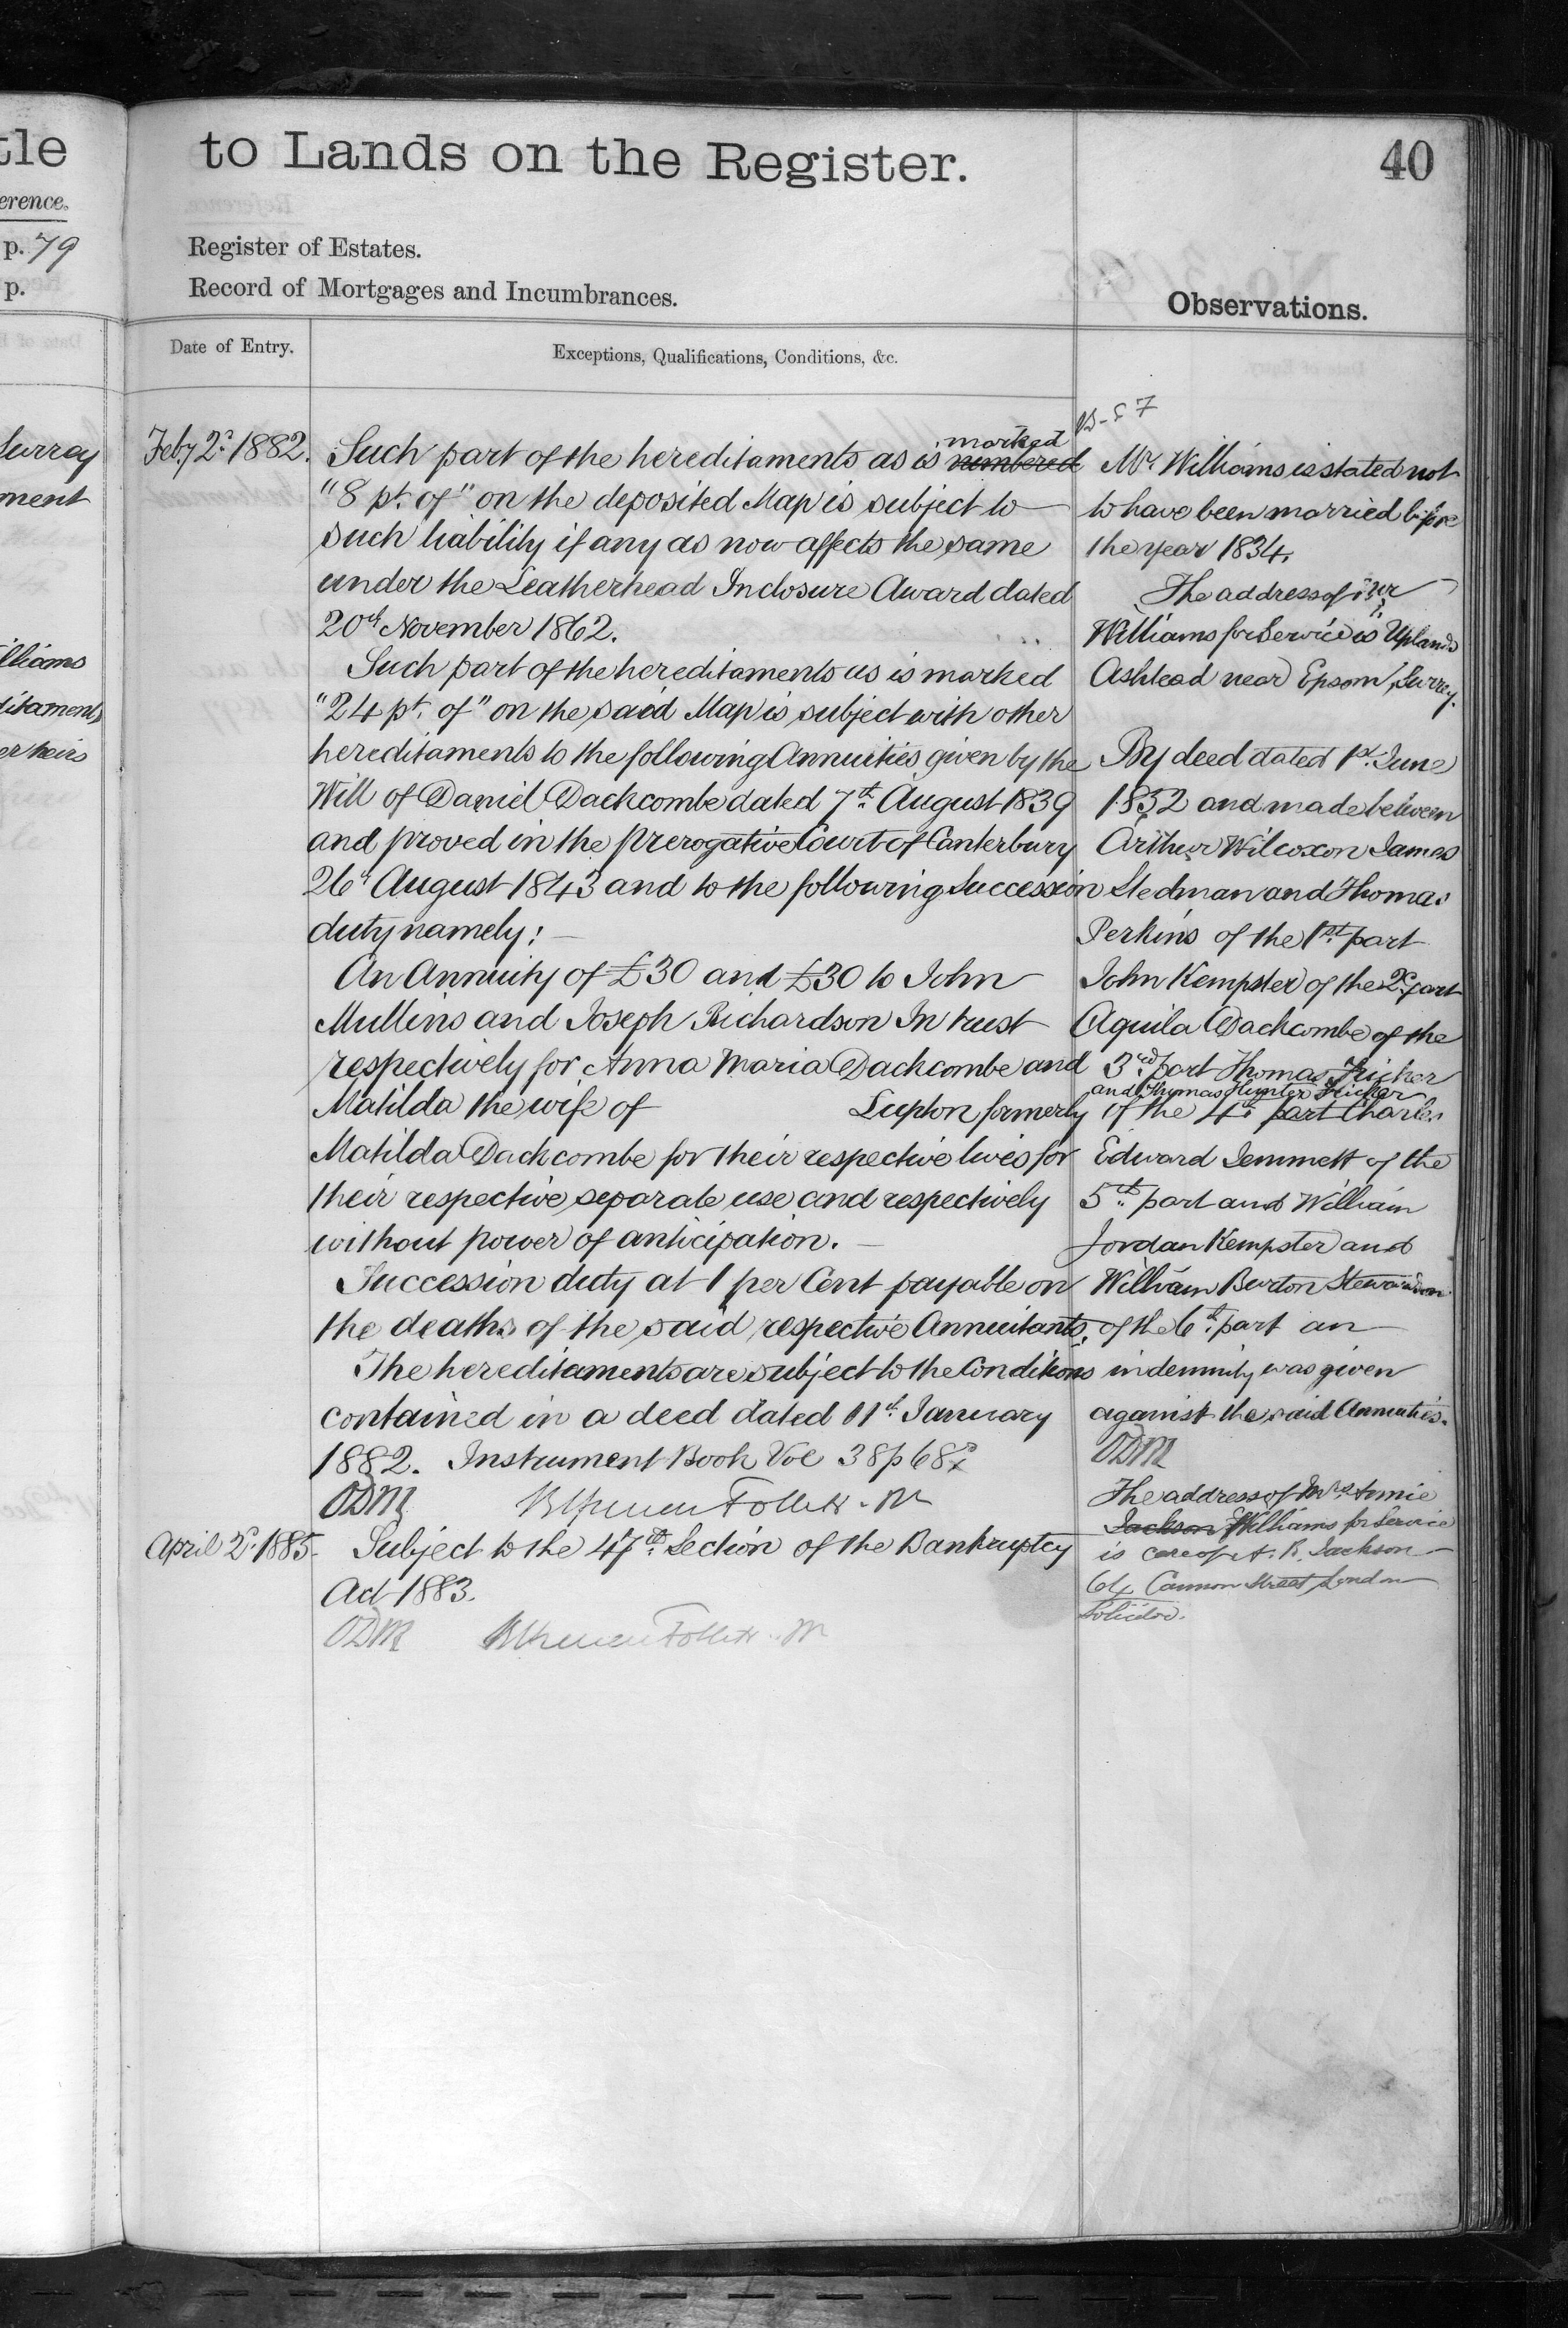 tle
erence.
p. 79
p.
Surrey
ment
illiams
ditaments
er heirs
to Lands on the Register.
40
Register of Estates.
Record of Mortgages and Incumbrances.
Observations.
Date of Entry.
Exceptions, Qualifications, Conditions, &c.
Feby 2d 1882.
Such part of the hereditaments as is numbered
marked
"8 pt. of" on the deposited Map is subject to
such liability if any as now affects the same
under the Leatherhead Inclosure Award dated
20th November 1862.
Such part of the hereditaments as is marked
"24 pt. of" on the said Map is subject with other
hereditaments to the following Annuities given by the
Will of Daniel Dachcombe dated 7th August 1839
and proved in the Prerogative Court of Canterbury
26th August 1843 and to the following Succession
duty namely: —
An Annuity of £30 and £30 to John
Mullins and Joseph Richardson In trust
respectively for Anna Maria Dachcombe and
Matilda the wife of Lupton formerly
Matilda Dachcombe for their respective lives for
their respective separate use and respectively
without power of anticipation. —
Succession duty at 1 per Cent payable on
the deaths of the said respective Annuitants.
The hereditaments are subject to the Conditions
contained in a deed dated 11th January
1882. Instrument Book Vol 38 p 68
ODM
April 2d 1885.
Subject to the 47th Section of the Bankruptcy
Act 1883.
ODM
Mr Williams is stated not
to have been married before
the year 1834.
The address of Mr
Williams for Service is Uplands
Ashtead near Epsom, Surrey.
By deed dated 1st June
1852 and made between
Arthur Wilcoxon James
Stedman and Thomas
Perkins of the 1st part
John Kempster of the 2d part
Aquila Dachcombe of the
3rd part Thomas Fricker
and Thomas Hunter Fricker
of the 4th part Charles
Edward Jemmett of the
5th part and William
Jordan Kempster and
William Burton
of the 6th part an
indemnity was given
against the said Annuities.
ODM
The address of Mrs Annie
Jackson Williams for Service
is care of A. R. Jackson
64 Cannon Street London
Solicitor.